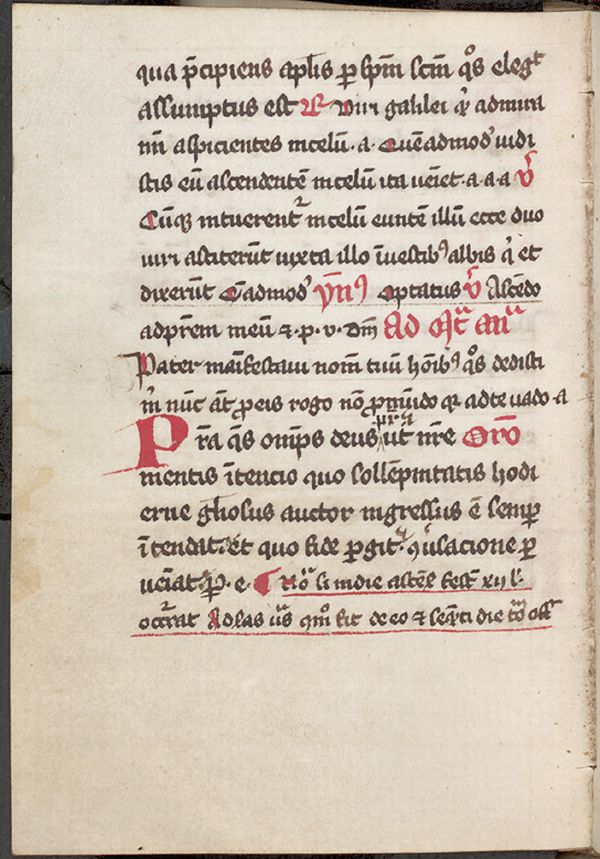 qua p̄cipiens aplis p sp̄m sc̄m q̊s elegt
assumptus est R̷ Viri galilei qͥ admira
mī aspicientes incelū · a · Quēadmod' vidi
stis eū ascendentē incelū ita ueīet · a · a · a V̄
Cūqꝫ intuerentᷣ incelū euntē illū ecce duo
uiri astiterūt iuxta illo īuestibꝰ albis qͥ et
dixerūt Q̄admod' ymꝰ Optatus V̄ Ascēdo
adpr̄em meū ⁊ · p · v · dm̄ Ad mͣ an̄
Pater manīfestaui nom̄ tuū hoībꝰ q̊s dedisti
m̄ nūc āt ꝓ eis rogo nō ꝓ mūdo qꝛ adte uado · a
P r̄a q̄s omp̄s deus ut nr̄e Oro
mentis ītencio quo sollēpnitatis hodi
erne gl̄iosus auctor ingressus ē semp
ītendat · et quo fide pgit · ꝯuͥsacione p
ueīat · p · e · ¶ No͛ si indie ascēs fest xij l
occͬrat Adlas uͣs